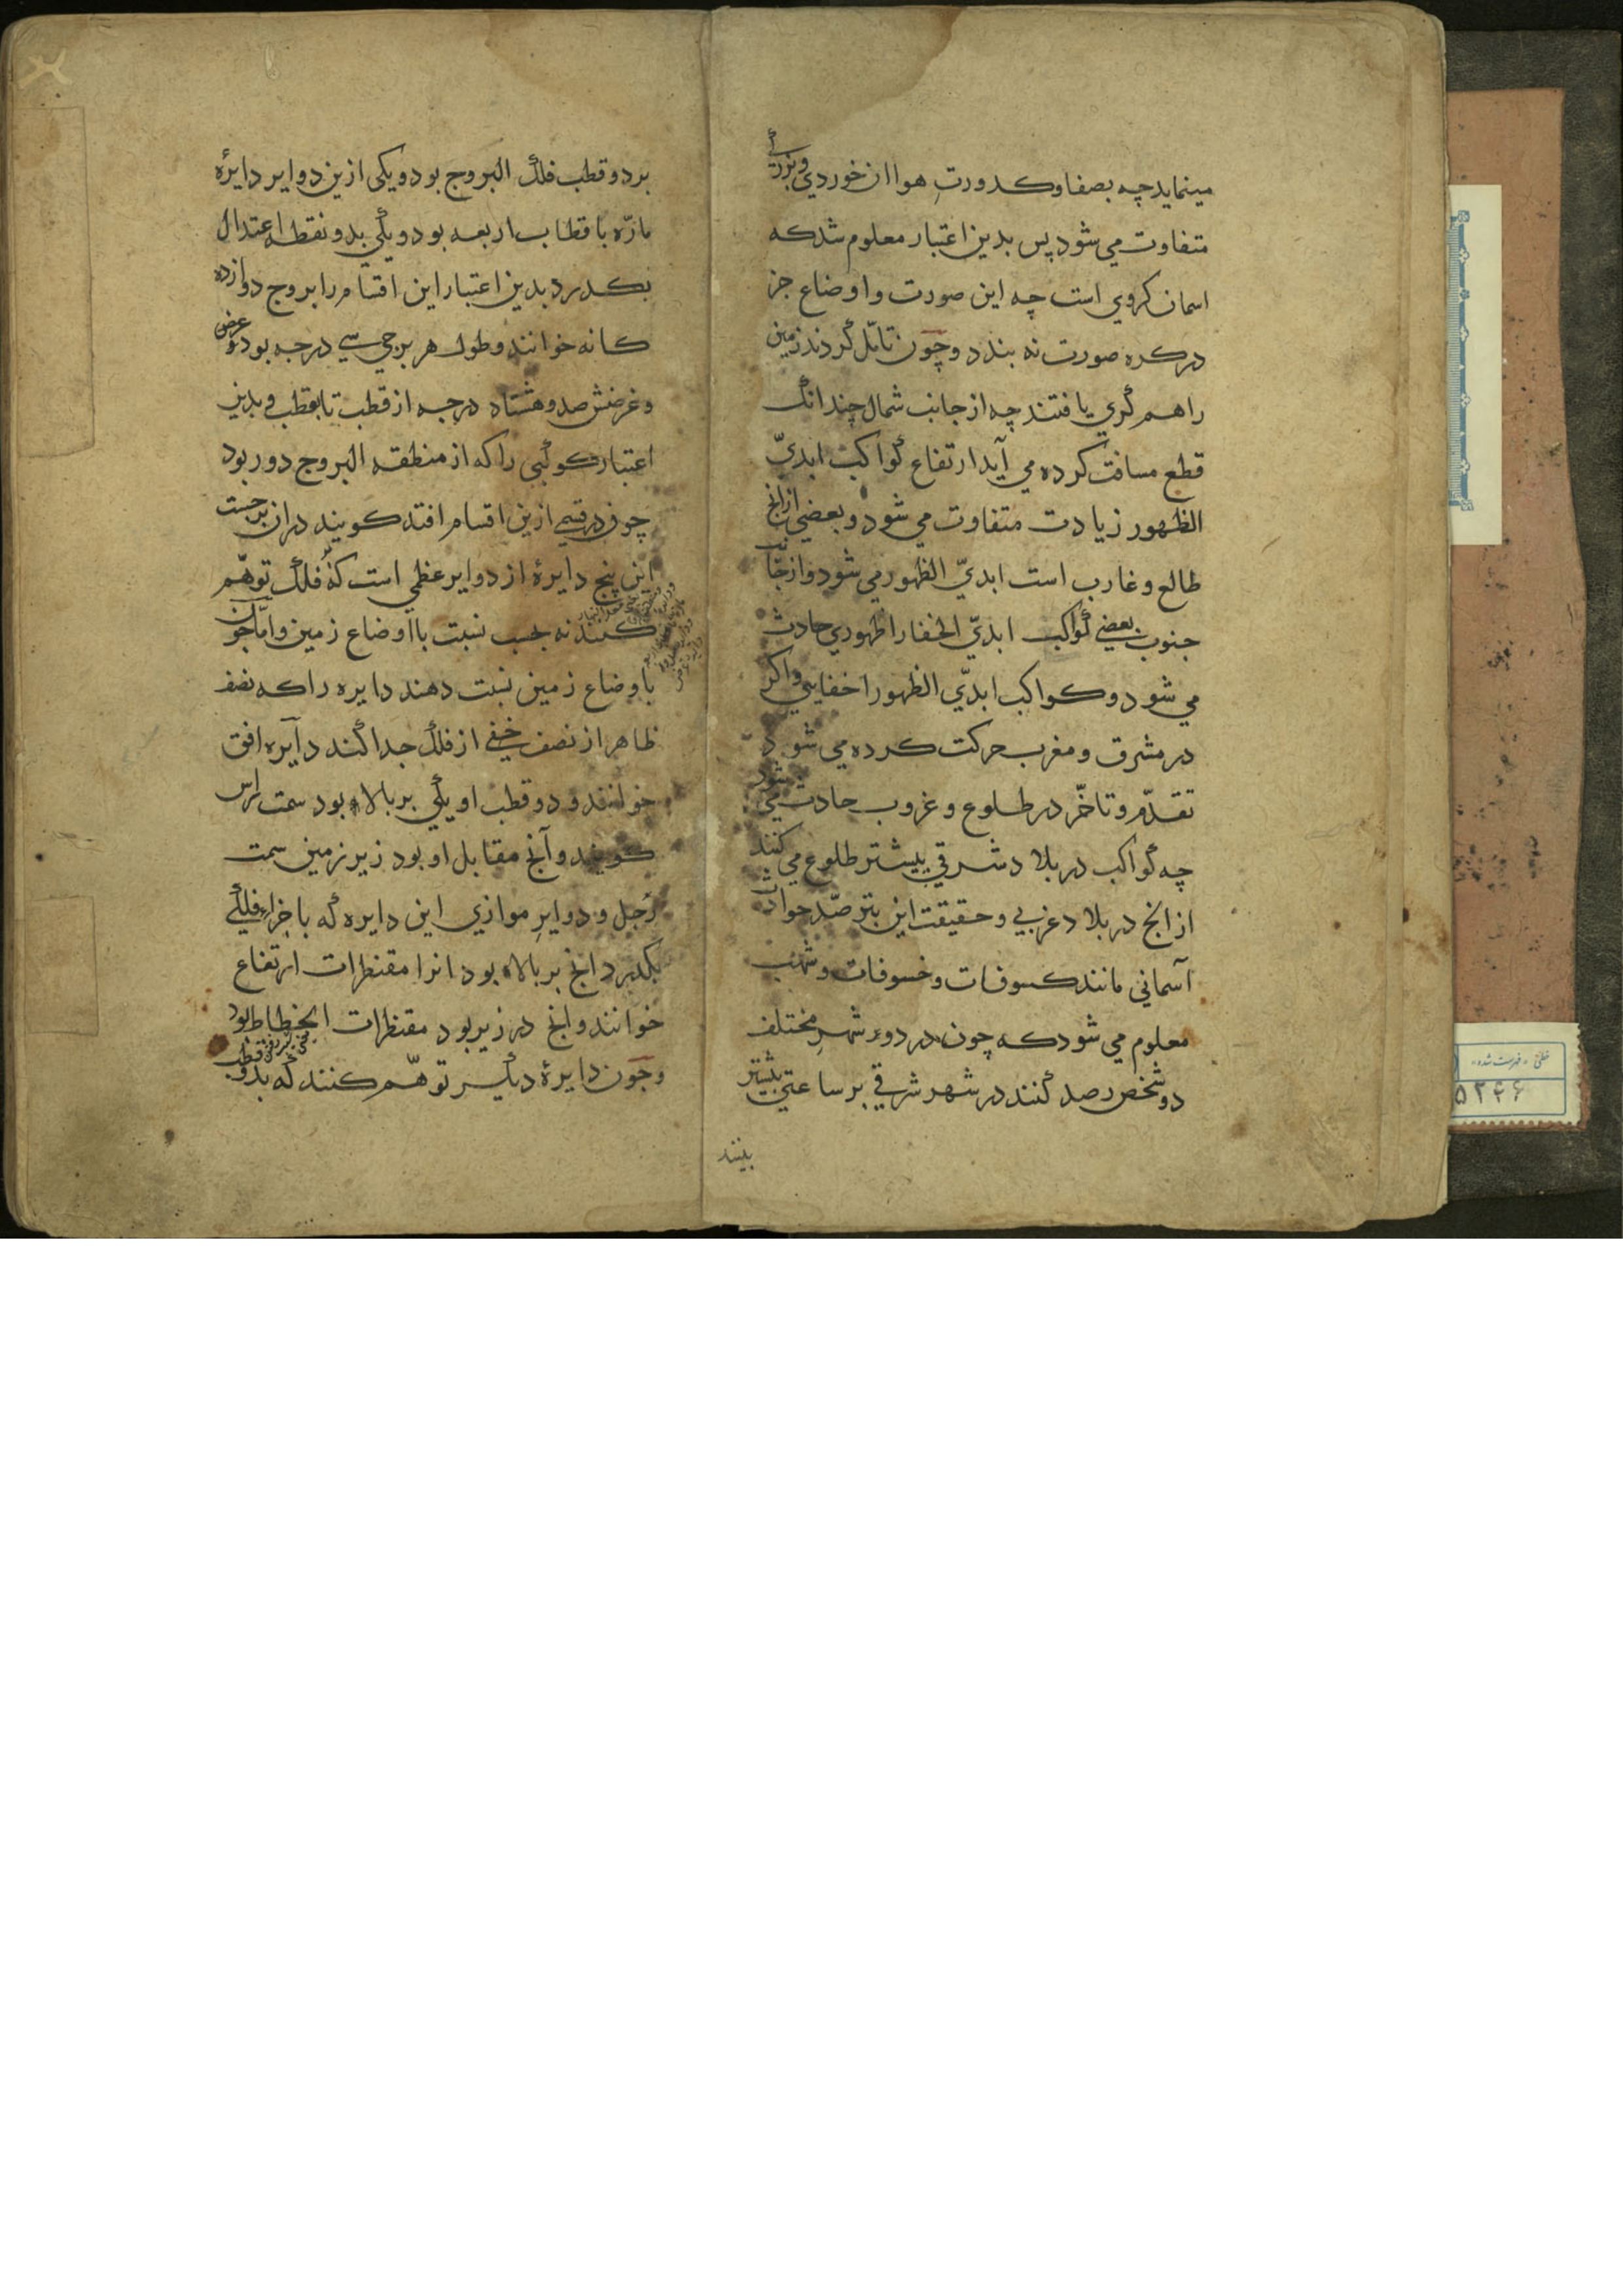 مینماید چه بصفا و کدورتِ هوا ان خوردی و بزرگی
متفاوت می شود پس بدین اعتبار معلوم شد که
اسمان کروی است چه این صورت و اوضاع جز
در کره صورت نه بندد و چون تامّل کردند زمین
را هم کُری یافتند چه از جانب شمال چندانک
قطع مسافت کرده می آید ارتفاع کواکب ابدیّ
الظهور زیادت متفاوت می شود و بعضی از انج
طالع و غارب است ابدیّ الظهور می شود و از جا
جنوب بعضی کواکب ابدیّ الخفا را ظهوری حادث
می شود و کواکب ابدیّ الظهور را خفایی و اکر
در مشرق و مغرب حرکت کرده می شود
تقدّم و تاخّر در طلوع و غروب حادث می شود
چه کواکب در بلاد شرقی بیشتر طلوع می کنند
از انج در بلاد غربی و حقیقت این بترصّد حوادث
آسمانی مانند کسوفات و خسوفات و شهب
معلوم می شود که چون در دو شهرِ مختلف
دو شخص رصد کنند در شهر شرقی بر ساعتی بیشتر
بینند
بر دو قطب فلک البروج بود و یکی ازین دوایر دایرهٔ
مارّه باقطاب اربعه بود و یکی بدو نقطه اعتدال
بکدرد بدین اعتبار این اقسام را بروج دوازده
کانه خوانند و طول هر برجی سی درجه بود و عرض
و عرضش صد و هشتاد درجه از قطب تا بقطب و بدین
اعتبار کوکبی را که از منطقه البروج دور بود
چون در قسمی ازین اقسام افتد کویند دران برجست
این پنج دایرهٔ از دوایر عظمی است که فلک توهّم
کنند نه بحسب نسبت با اوضاع زمین و امّا چون
با وضاع زمین نسبت دهند دایره را که نصف
ظاهر از نصف خفی از فلک جدا کند دایره افق
خوانند و دو قطب او یکی بر بالا بود سمت راس
کویند و آنج مقابل او بود زیر زمین سمت
رجل و دوایرِ موازی این دایره که باجزاء فلکی
بکدرد انج بر بالا بود انرا مقنطرات ارتفاع
خوانند و انج در زیر بود مقنطرات انحطاط بود
و چون دایرهٔ دیگر توهّم کنند که بدو قطب
۵۲۴۶
خطی - فهرست شده